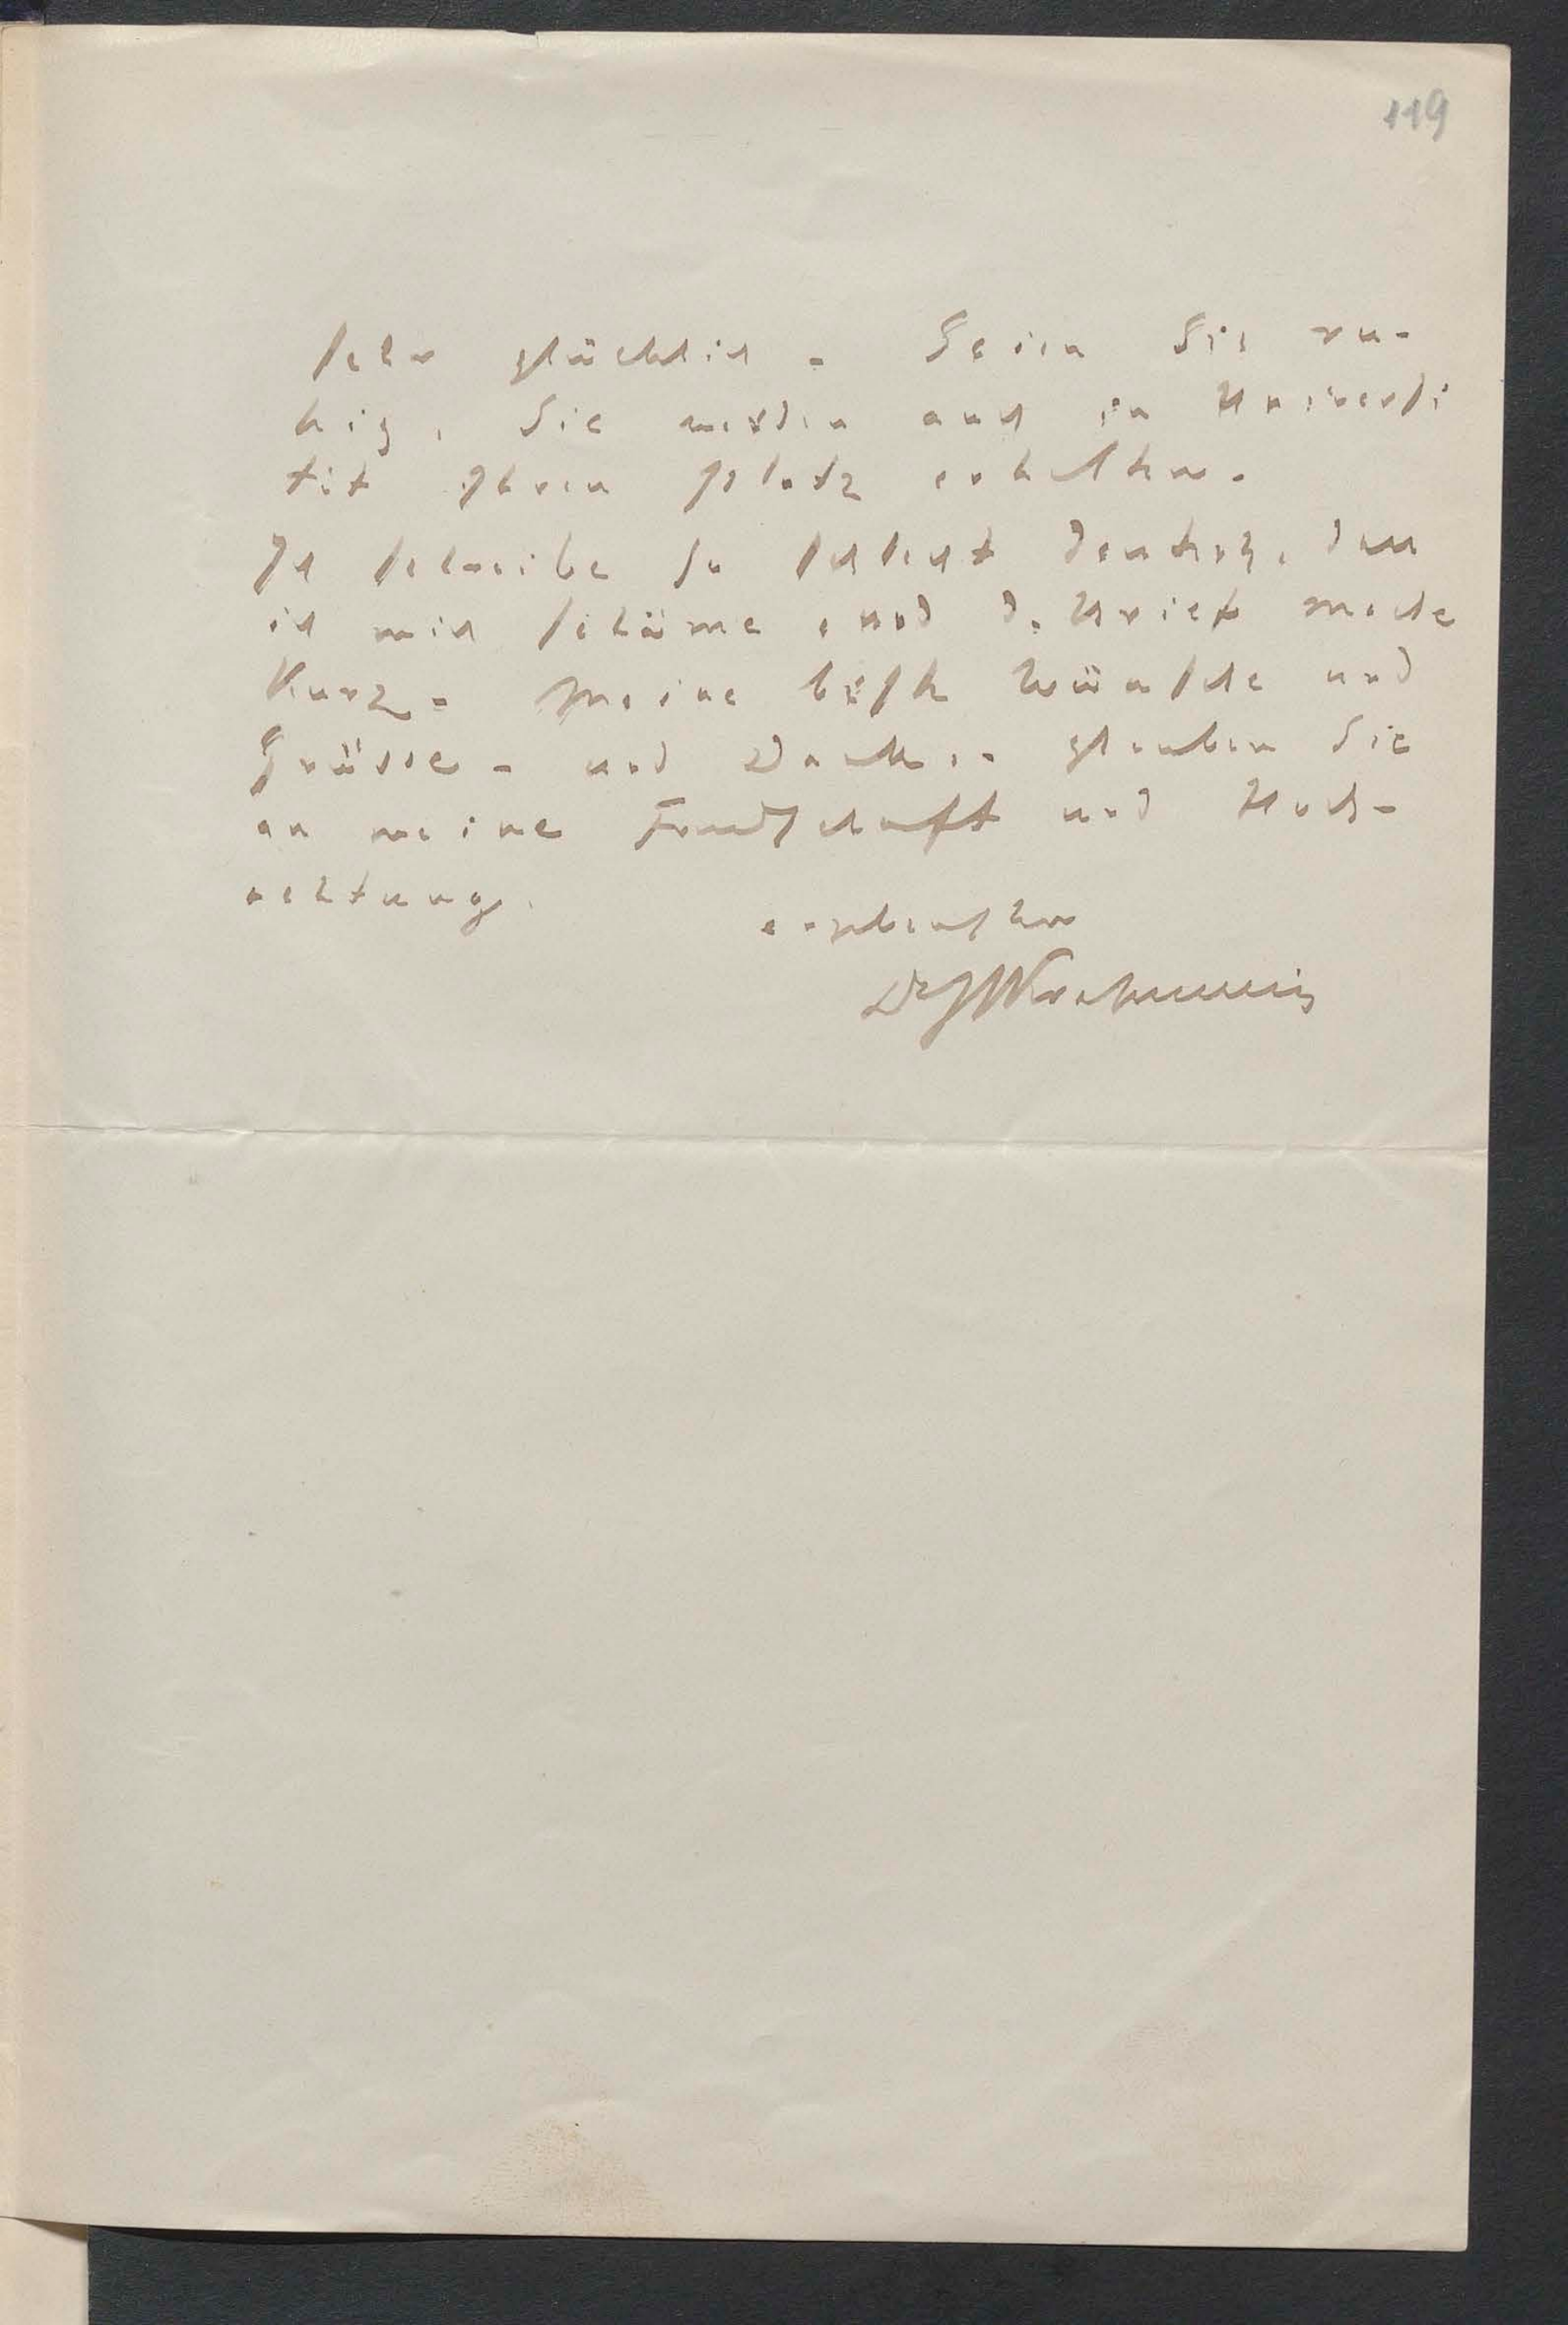 119
sehr glücklich. Seien Sie ru-
hig, Sie werden auch in Universi
tät Ihren Platz erhalten.
Ich schreibe so schlecht deutsch, dass
ich mich schäme, und d. Brief mache
kurz. Meine beste Wünsche und
Grüsse - und Danke. glauben Sie
an meine Freundschaft und Hoch-
achtung.
ergebenster